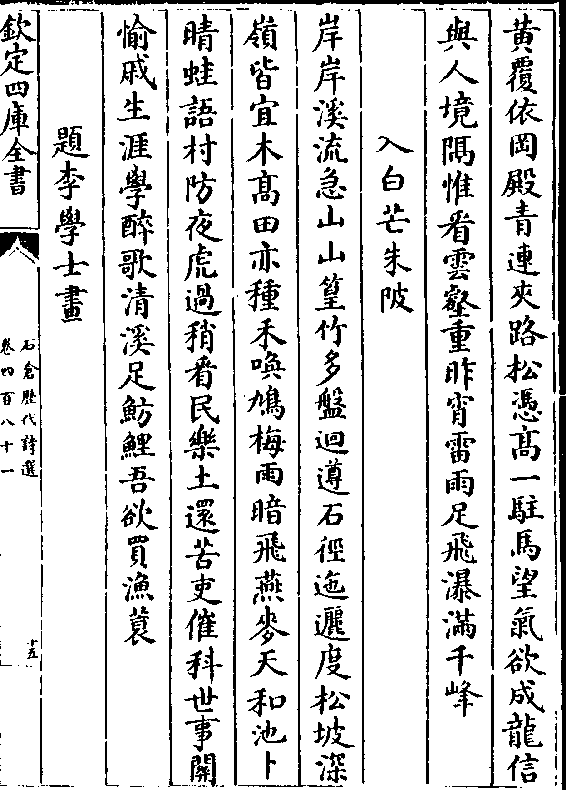 黄覆依岡殿青連夾路松憑髙一駐馬望氣欲成龍信
與人境隅惟看雲壑重昨宵雷雨足飛瀑滿千峰
入白芒朱陂
岸岸溪流急山山篁竹多盤迴遵石徑迤邐度松坡深
嶺皆宜木髙田亦種禾喚鳩梅雨暗飛燕麥天和池卜
晴蛙語村防夜虎過稍看民樂土還苦吏催科世事關
愉戚生涯學醉歌清溪足魴鯉吾欲買漁蓑
題李學士畫
欽定四庫全書
石倉歷代詩選
卷四百八十一
十五